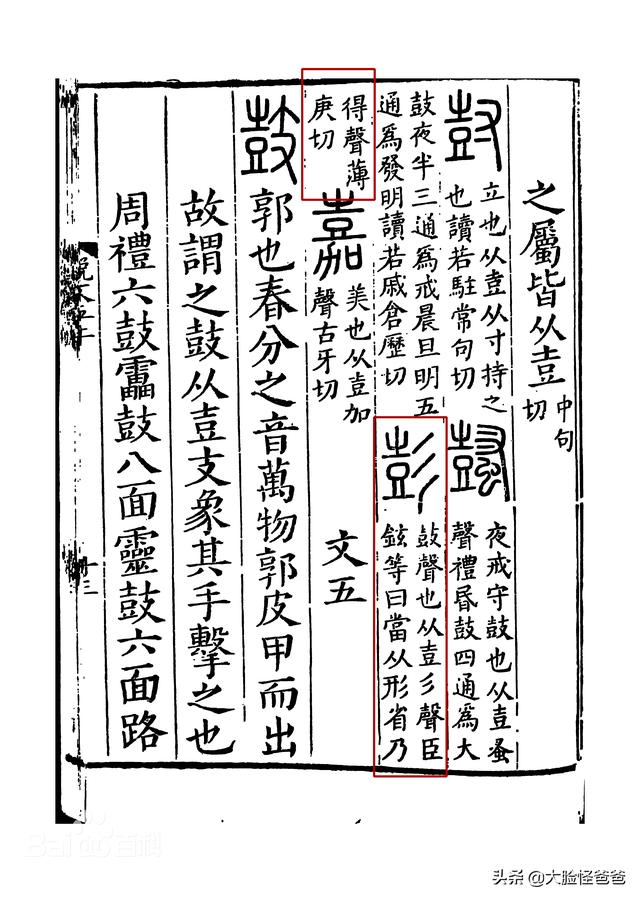 之屬皆从壴
中句
切
尌
立也从壴从寸持之
也讀若駐常句切
𡔷
夜戒守鼓也从壴蚤
聲禮昬鼓四通爲大
鼓夜半三通爲戒晨旦明五
通爲發明讀若戚倉歷切
彭
鼓聲也从壴彡聲臣
鉉等曰當从形省乃
得聲薄
庚切
嘉
美也从壴加
聲古牙切
文五
鼓
郭也春分之音萬物郭皮甲而出
故謂之鼓从壴支象其手擊之也
周禮六鼓靁鼓八面靈鼓六面路
十三
Bai百科
头条 @大脸怪爸爸